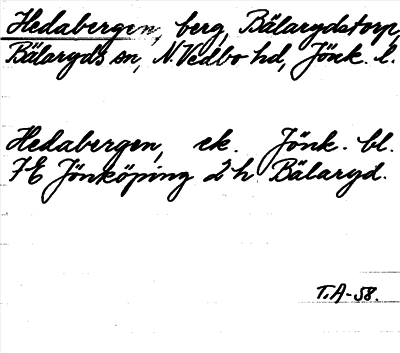 Hedabergen, berg, Bälarydstorp,
Bälaryds sn, N. Vedbo hd, Jönk. l.
Hedabergen, ek. Jönk. bl.
7E Jönköping 2h Bälaryd.
T.A-58.